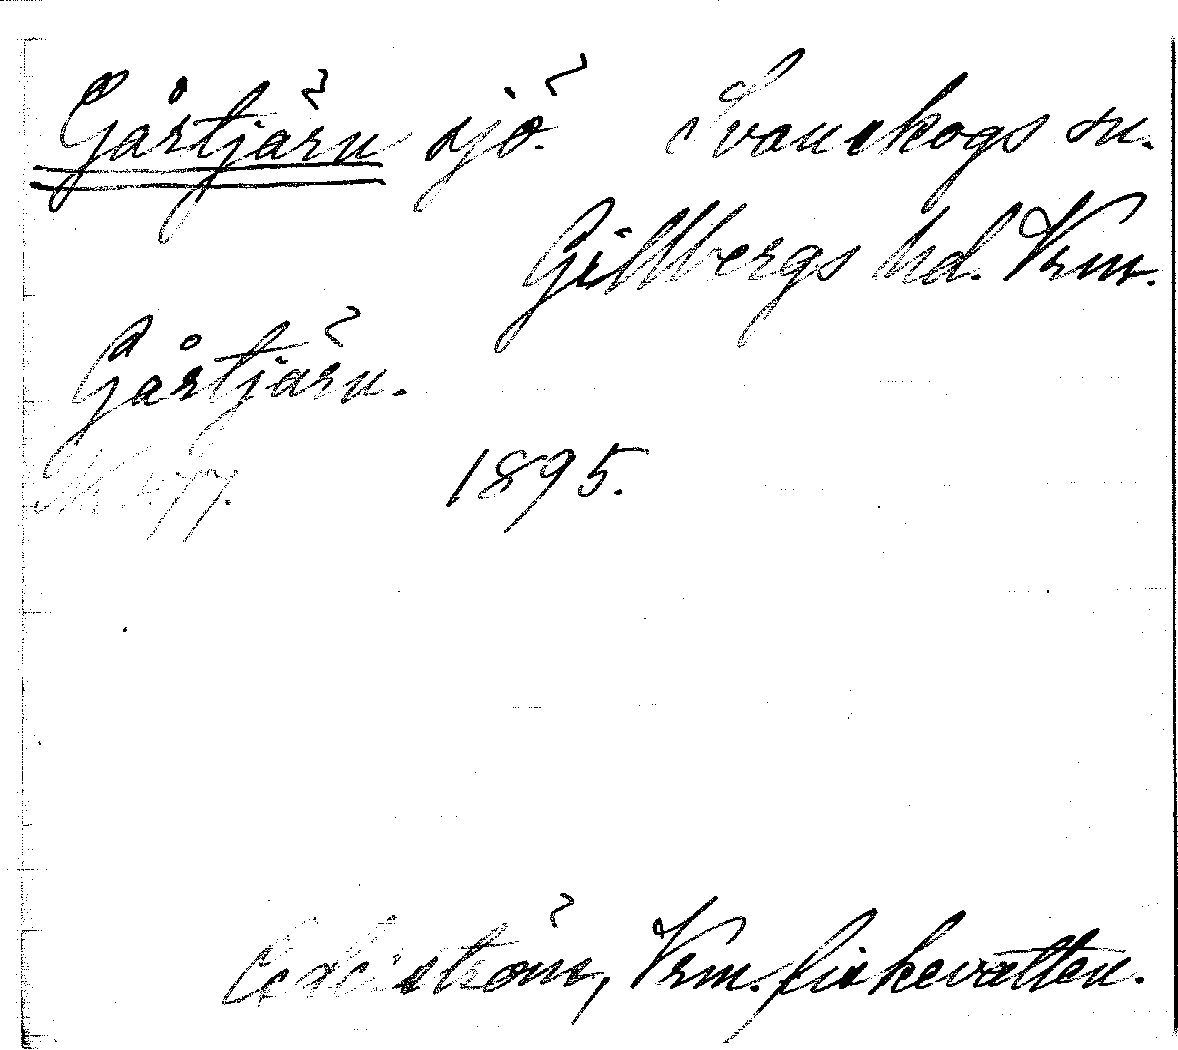 Gårtjärn sjö. Svanskogs sn.
Gillbergs hd. Vrm.
Gårtjärn.
Nr 477. 1895.
Cederström, Vrm. fiskevatten.